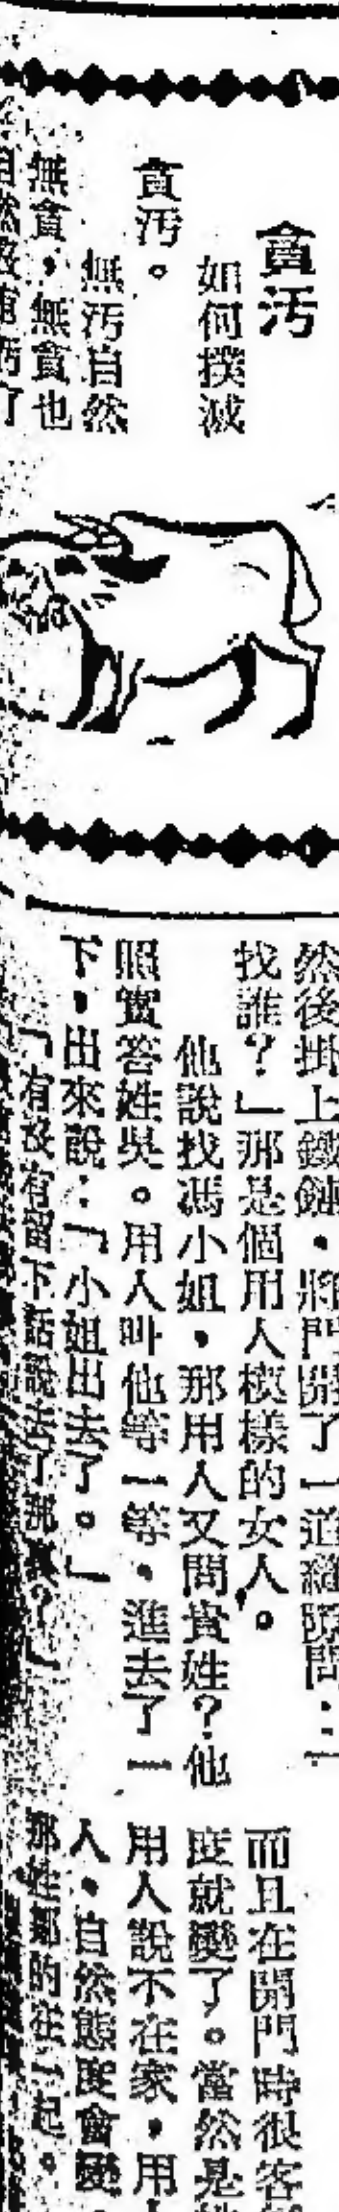 貪污
如何撲滅
貪污。
無污自然
無貪,無貪也
然後掛上鐵鏈,將門開了一道縫隙問:「
找誰?」那是個用人模樣的女人。
他說找馮小姐,那用人又問貴姓?他
照實答姓吳。用人叫他等一等,進去了一
下,出來說:「小姐出去了。」
「有沒有留下話說去了那裏?」
而且在開門時很客
度就變了。當然是
用人說不在家,用
人,自然態度會變
那姓鄭的在一起。